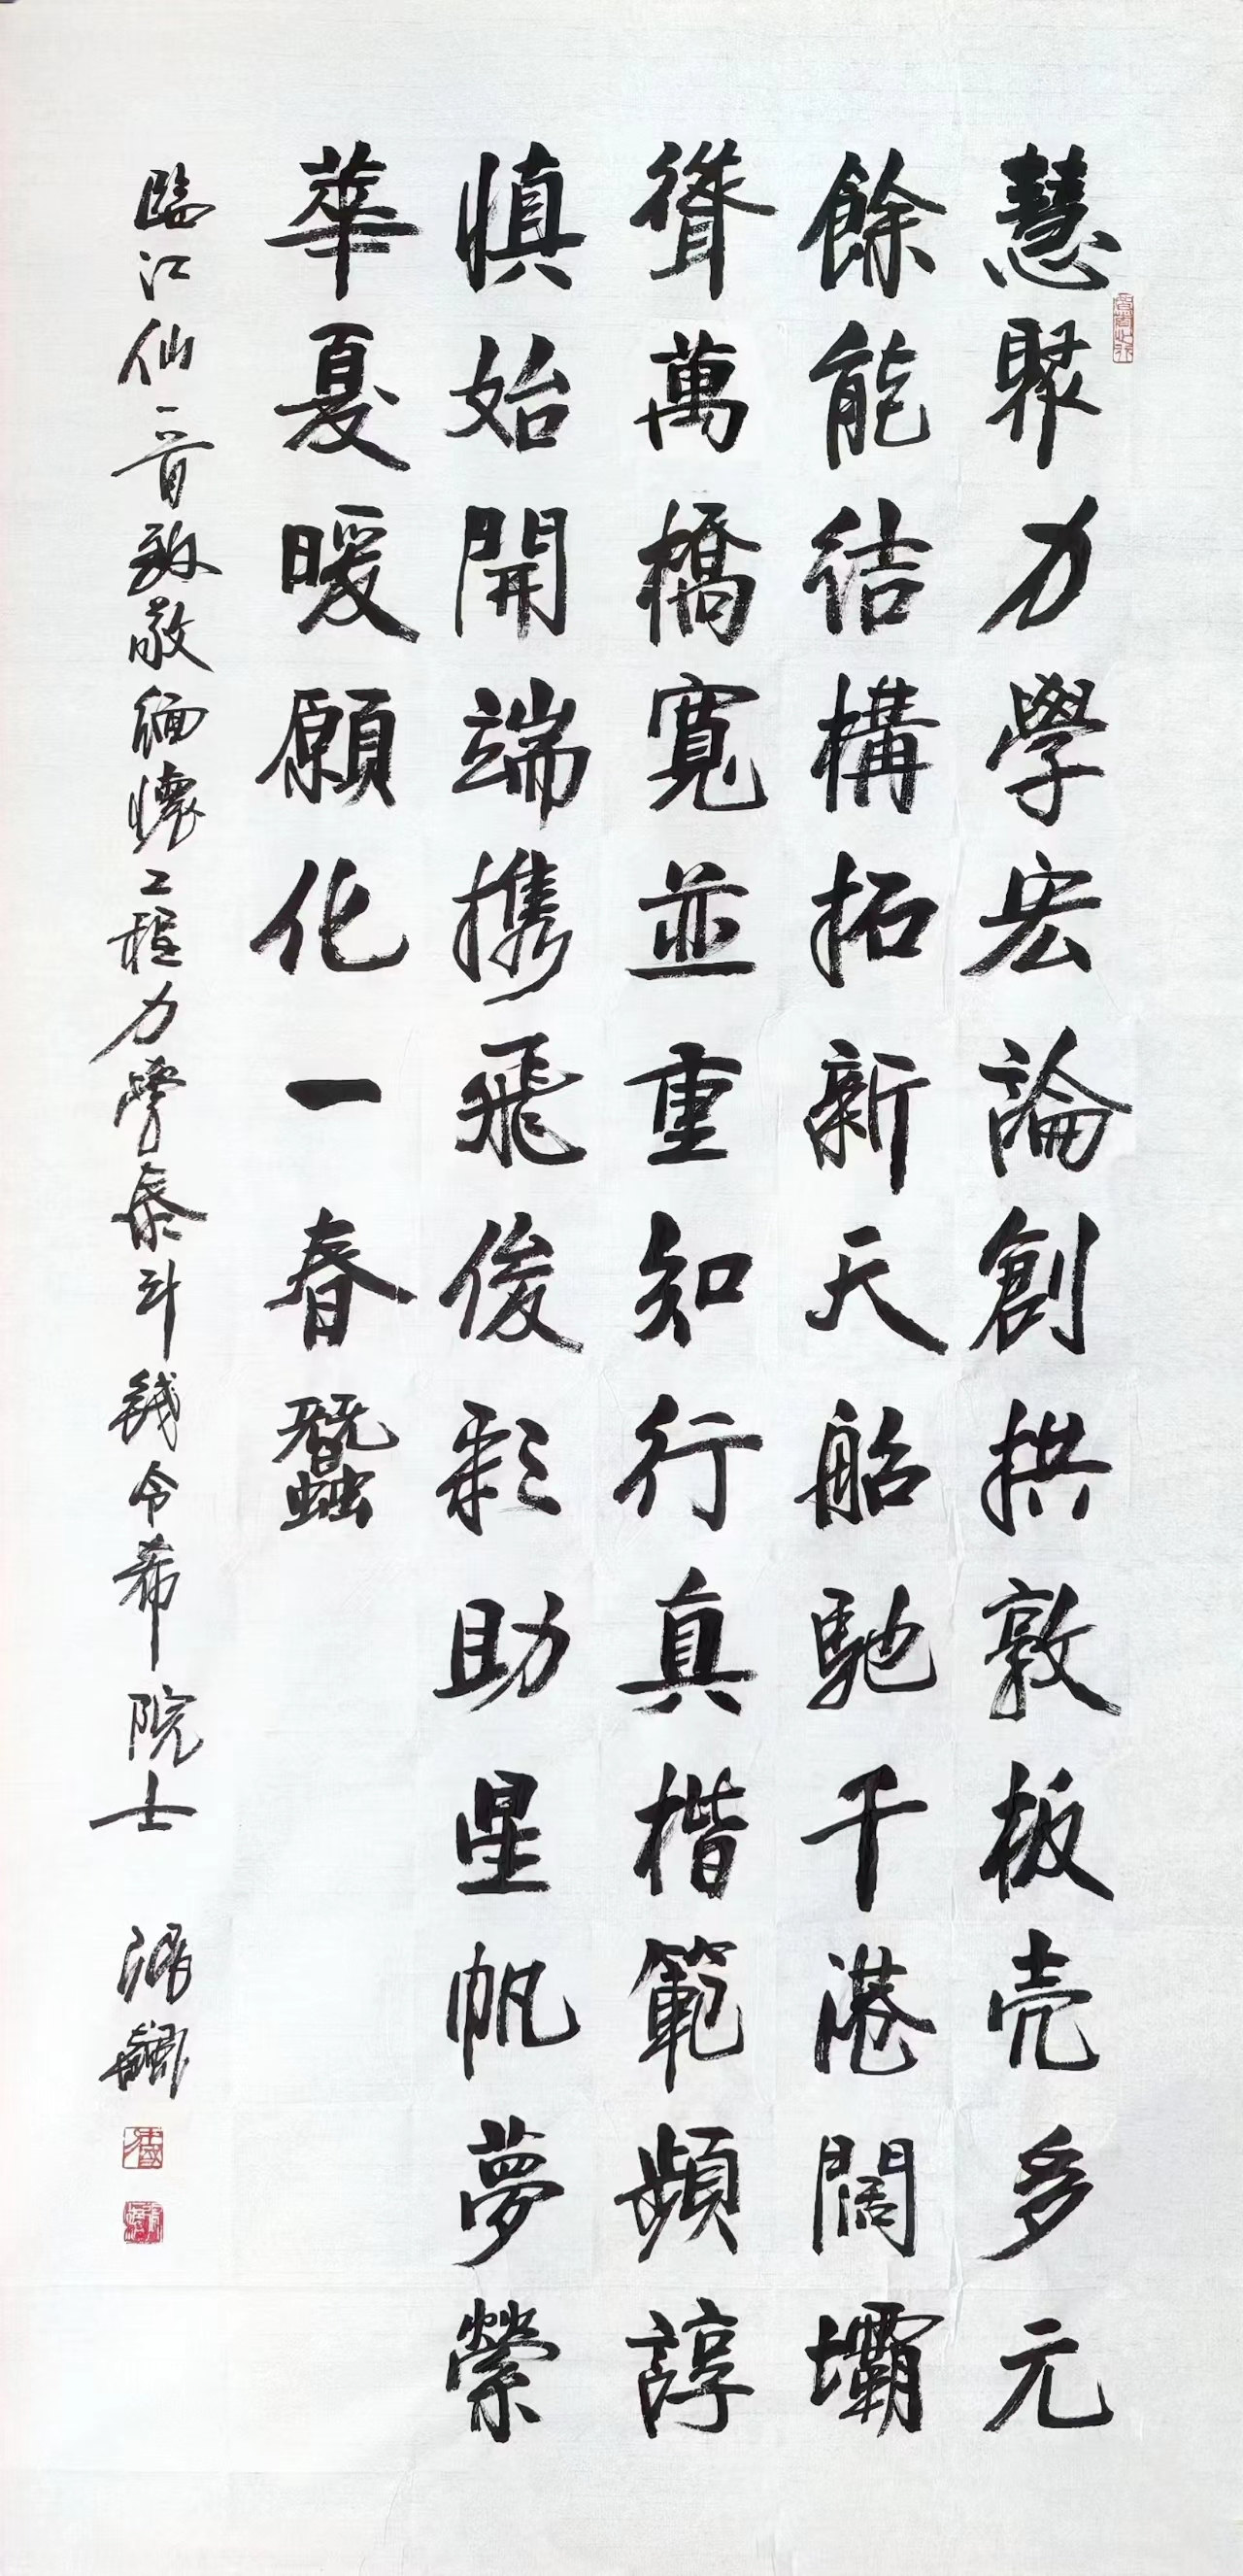 慧聚力學宏論創拱敦板壳多元
餘能結構拓新天船馳千港闊壩
聳萬橋寬並重知行真楷範頻諄
慎始開端携飛俊彩助星帆夢縈
華夏暖願化一春蠶
臨江仙一首致敬緬懷工程力學泰斗钱令希院士